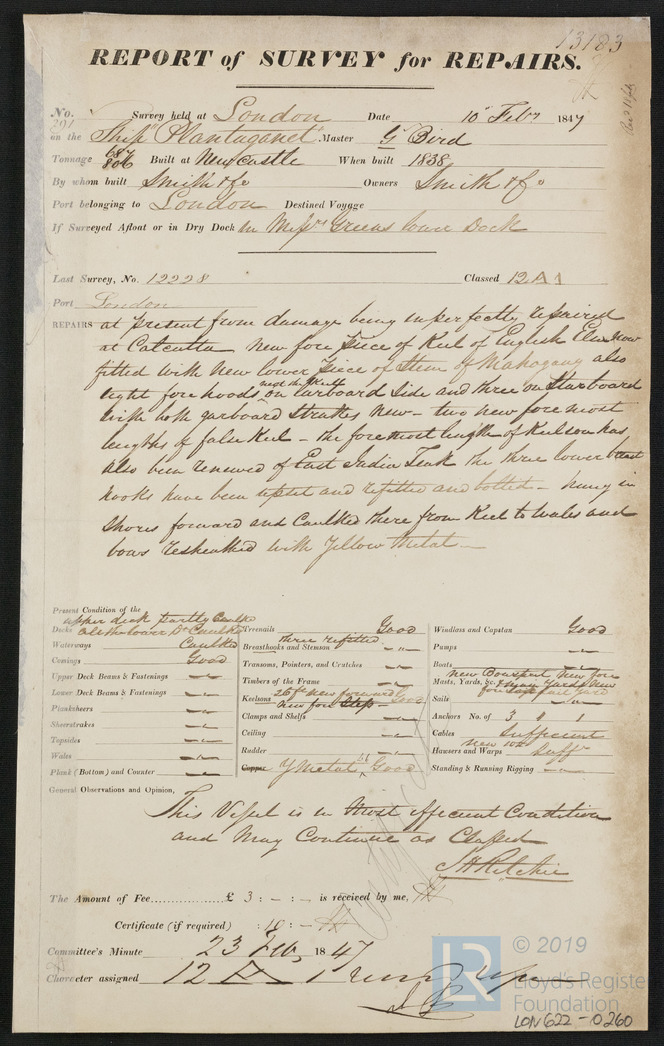 13183
REPORT of SURVEY for REPAIRS.
No. 291 Survey held at London Date 10th Feby 1847
on the Ship "Plantaganet" Master G Bird
Tonnage 687 806 Built at Newcastle When built 1838
By whom built Smith & Co Owners Smith & Co
Port belonging to London Destined Voyage
If Surveyed Afloat or in Dry Dock In Messrs Greens lower Dock
Last Survey, No. 12228 Classed 12 A 1
Port London
REPAIRS at present from damage being imperfectly repaired
at Calcutta New fore piece of Keel of English Elm now
fitted with new lower piece of Stem of Mahogany also
eight fore hoods next the Keel on larboard side and three on Starboard
with both garboard Strakes new - two new fore most
lengths of false Keel - the foremost length of Keelson has
also been renewed of East India Teak the three lower breast
hooks have been upset and refitted and bolted - hung in
Shores forward and Caulked there from Keel to Wales and
bows resheathed with Yellow Metal -
Present Condition of the
upper deck partly Caulkd
Decks Caulked
Waterways Caulked
Comings Good
Upper Deck Beams & Fastenings "
Lower Deck Beams & Fastenings "
Planksheers "
Sheerstrakes "
Topsides "
Wales "
Plank (Bottom) and Counter "
Treenails Good
three refitted
Breasthooks and Stemson "
Transoms, Pointers, and Crutches "
Timbers of the Frame "
Keelsons 26 ft new forward Good
new fore Step
Clamps and Shelfs "
Ceiling "
Rudder "
Copper Y Metal Good
Windlass and Capstan Good
Pumps "
Boats "
new Bowsprit New fore
Masts, Yards, &c. Yards new
Sails "
Anchors No. of 3 " 1
Cables Sufficient
Hawsers and Warps new Sufft
Standing & Running Rigging "
General Observations and Opinion,
This Vessel is in Most efficient Condition
and May Continue as Classed
J H Ritchie
The Amount of Fee £ 3 : - : - is received by me,
Certificate (if required) : 10 : -
Committee's Minute 23 Feb 1847
Character assigned 12 A 1
LR © 2019
Lloyd's Register
Foundation
LON622-0260